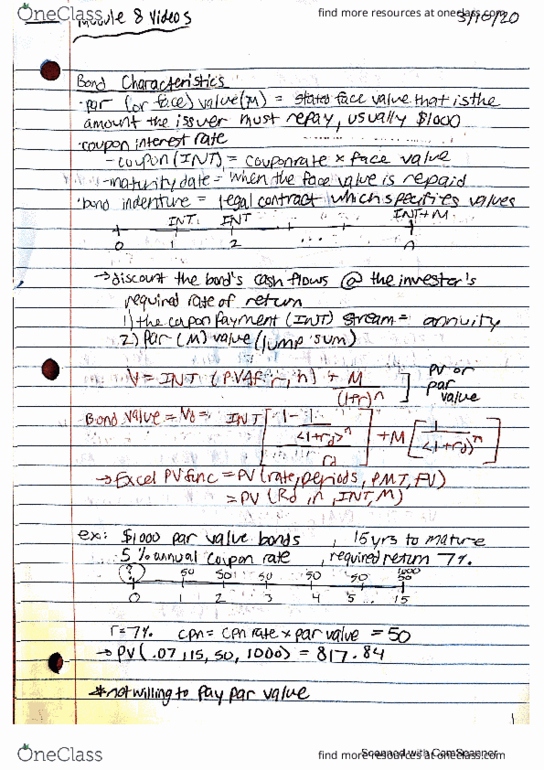 OneClass
find more resources at oneclass.com
3/16/20
Module 8 Videos
Bond Characteristics
·par (or face) value(M) = stated face value that is the
amount the issuer must repay, usually $1000
·coupon interest rate
-coupon (INT) = couponrate × face value
-maturity date = when the face value is repaid
·bond indenture = legal contract which specifies values
INT INT INT+M
0 1 2 ... n
→discount the bond's cash flows @ the investor's
required rate of return
1) the coupon payment (INT) stream = annuity
2) par (M) value (lump sum)
V = INT (PVAF r, n) + M/(1+r)^n ] PV or par value
Bond value = Vd = INT [ 1 - 1/(1+rd)^n / rd ] + M [ 1/(1+rd)^n ]
→ Excel PV func = PV (rate, periods, PMT, FV)
= PV (Rd, n, INT, M)
ex: $1000 par value bonds , 15 yrs to mature
5% annual coupon rate , required return 7%
? 50 50 50 50 50 1000 50
0 1 2 3 4 5 .. 15
r=7% cpn = cpn rate × par value = 50
→ PV (.07, 15, 50, 1000) = 817.84
*not willing to pay par value
1
OneClass
Scanned with CamScanner
find more resources at oneclass.com